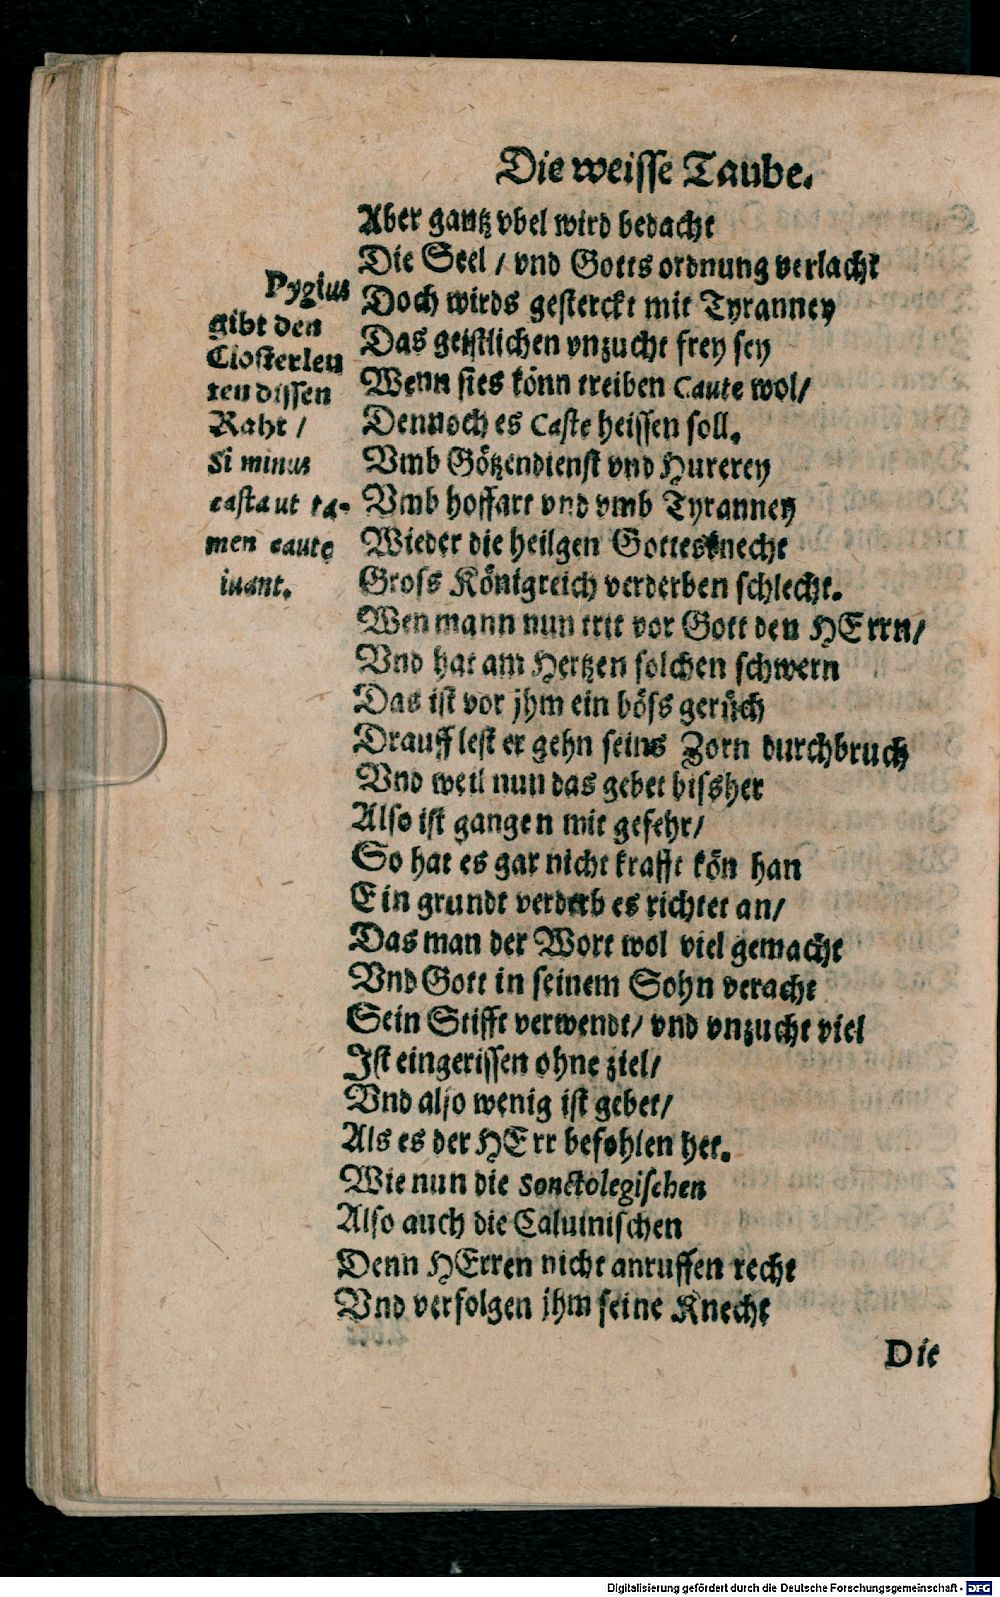 Die weisse Taube.
Aber gantz vbel wird bedacht
Die Seel / vnd Gotts ordnung verlacht
Doch wirds gesterckt mit Tyranney
Das geistlichen vnzucht frey sey
Wenn sies könn treiben Caute wol/
Dennoch es Caste heissen soll.
Vmb Götzendienst vnd Hurerey
Vmb hoffart vnd vmb Tyranney
Wieder die heilgen Gottesknecht
Gross Königreich verderben schlecht.
Wen mann nun trit vor Gott den HErrn/
Vnd hat am Hertzen solchen schwern
Das ist vor jhm ein böss gerüch
Drauff lest er gehn seins Zorn durchbruch
Vnd weil nun das gebet bissher
Also ist gangen mit gefehr/
So hat es gar nicht krafft kön han
Ein grundt verderb es richtet an/
Das man der Wort wol viel gemacht
Vnd Gott in seinem Sohn veracht
Sein Stifft verwendt/ vnd vnzucht viel
Ist eingerissen ohne ziel/
Vnd also wenig ist gebet/
Als es der HErr befohlen het.
Wie nun die Sonctolegischen
Also auch die Caluinischen
Denn HErren nicht anruffen recht
Vnd verfolgen jhm seine Knecht
Die
Pygius
gibt den
Closterleu
ten dissen
Raht /
Si minus
casta ut ta-
men caute
iuant.
Digitalisierung gefördert durch die Deutsche Forschungsgemeinschaft - DFG